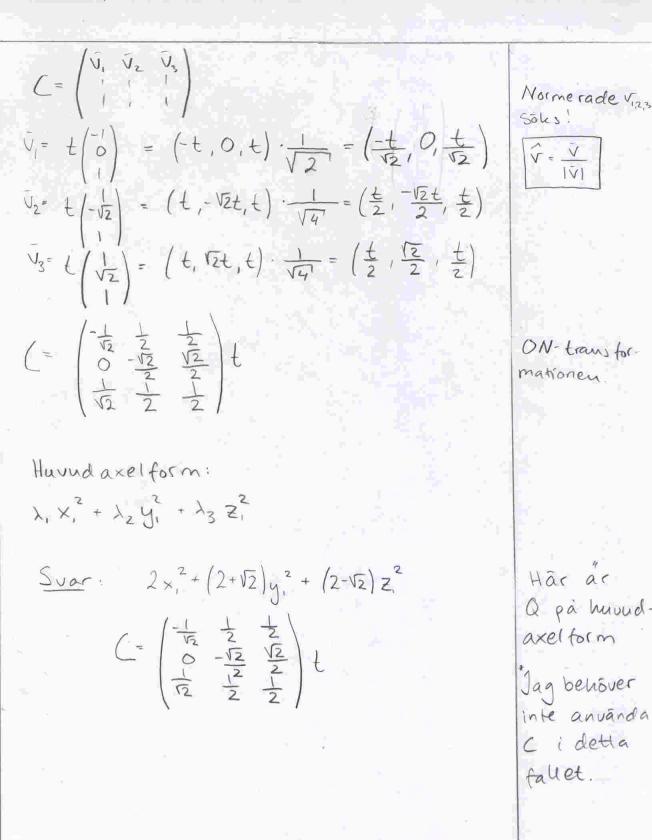 C = ( v̄₁ v̄₂ v̄₃ )
v̄₁ = t ( -1 0 1 ) = (-t, 0, t) · 1/√2 = ( -t/√2, 0, t/√2 )
v̄₂ = t ( 1 -√2 1 ) = (t, -√2t, t) · 1/√4 = ( t/2, -√2t/2, t/2 )
v̄₃ = t ( 1 √2 1 ) = (t, √2t, t) · 1/√4 = ( t/2, √2/2, t/2 )
C = ( -1/√2 1/2 1/2
0 -√2/2 √2/2
1/√2 1/2 1/2 ) t
Huvudaxelform:
λ₁ x₁² + λ₂ y₁² + λ₃ z₁²
Svar: 2x₁² + (2+√2)y₁² + (2-√2)z₁²
C = ( -1/√2 1/2 1/2
0 -√2/2 √2/2
1/√2 1/2 1/2 ) t
Normerade v̄₁,₂,₃
söks!
v̂ = v̄/|v̄|
ON-transfor-
mationen
Här är
Q på huvud-
axelform
Jag behöver
inte använda
C i detta
fallet.